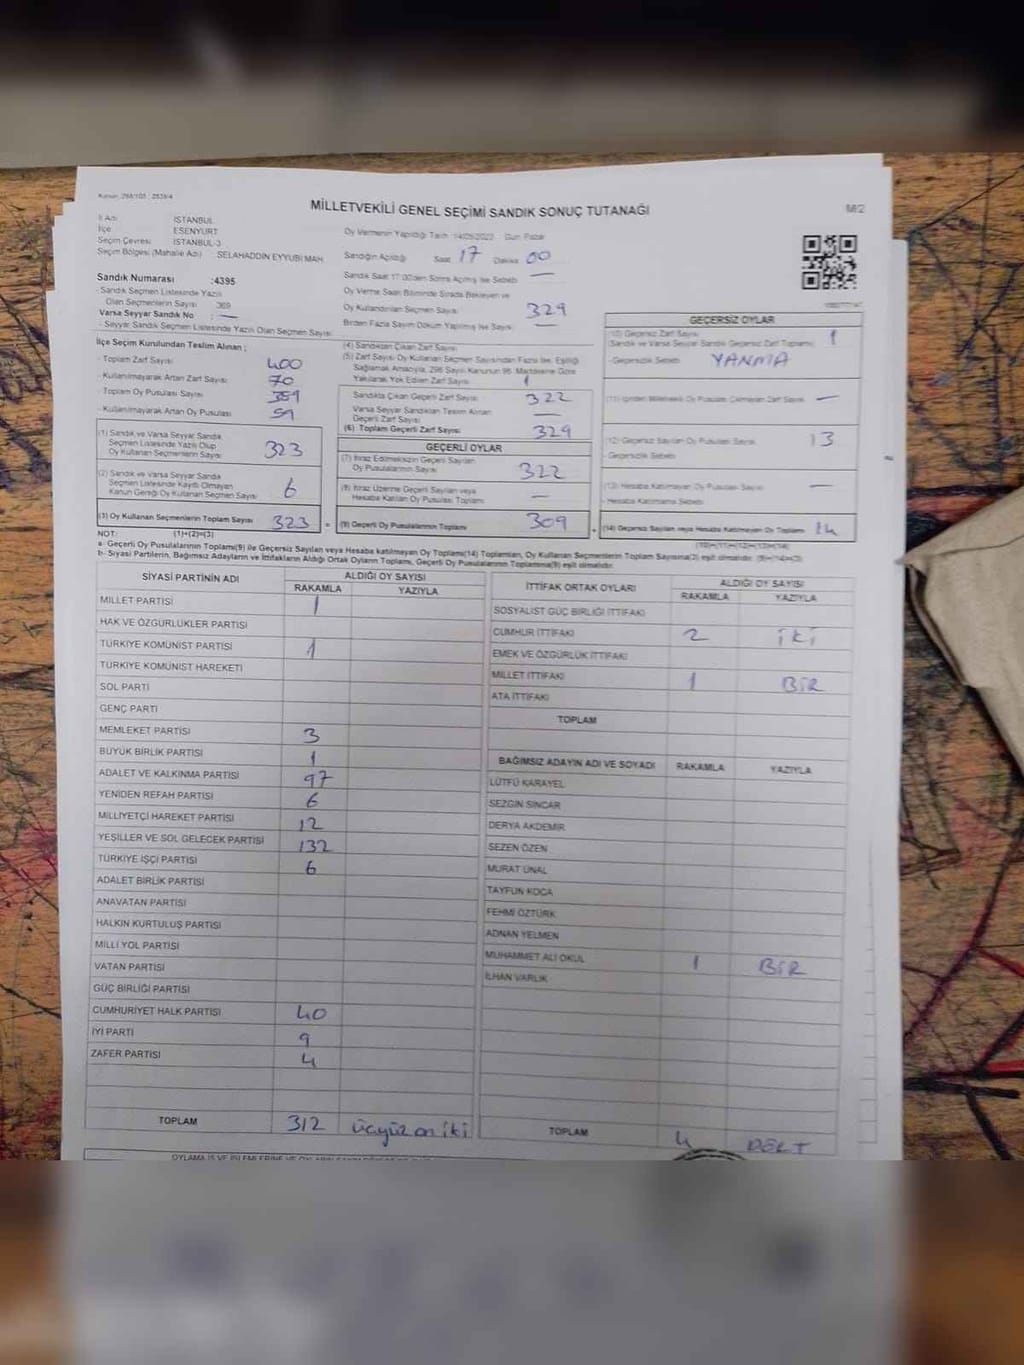 MİLLETVEKİLİ GENEL SEÇİMİ SANDIK SONUÇ TUTANAĞI
M/2
İl Adı : İSTANBUL
İlçe : ESENYURT
Seçim Çevresi : İSTANBUL-3
Seçim Bölgesi (Mahalle Adı) : SELAHADDİN EYYUBİ MAH.
Sandık Numarası :4395
- Sandık Seçmen Listesinde Yazılı
Olan Seçmenlerin Sayısı : 389
Varsa Seyyar Sandık No : —
- Seyyar Sandık Seçmen Listesinde Yazılı Olan Seçmen Sayısı
Oy Vermenin Yapıldığı Tarih : 14/05/2023 Gün: Pazar
Sandığın Açıldığı Saat 17 Dakika 00
Sandık Saat 17:00'den Sonra Açılmış İse Sebebi —
Oy Verme Saati Bitiminde Sırada Bekleyen ve
Oy Kullandırılan Seçmen Sayısı 329
Birden Fazla Sayım Döküm Yapılmış İse Sayısı —
İlçe Seçim Kurulundan Teslim Alınan ;
- Toplam Zarf Sayısı 400
- Kullanılmayarak Artan Zarf Sayısı 70
- Toplam Oy Pusulası Sayısı
- Kullanılmayarak Artan Oy Pusulası
(1) Sandık ve Varsa Seyyar Sandık
Seçmen Listesinde Yazılı Olup
Oy Kullanan Seçmenlerin Sayısı 323
(2) Sandık ve Varsa Seyyar Sandık
Seçmen Listesinde Kayıtlı Olmayan
Kanun Gereği Oy Kullanan Seçmen Sayısı 6
(3) Oy Kullanan Seçmenlerin Toplam Sayısı 323
(4) Sandıktan Çıkan Zarf Sayısı
(5) Zarf Sayısı Oy Kullanan Seçmen Sayısından Fazla İse, Eşitliği
Sağlamak Amacıyla, 298 Sayılı Kanunun 98. Maddesine Göre
Yakılarak Yok Edilen Zarf Sayısı 1
Sandıkta Çıkan Geçerli Zarf Sayısı 322
Varsa Seyyar Sandıktan Teslim Alınan
Geçerli Zarf Sayısı —
(6) Toplam Geçerli Zarf Sayısı 329
GEÇERLİ OYLAR
(7) İtiraz Edilmeksizin Geçerli Sayılan
Oy Pusulalarının Sayısı 322
(8) İtiraz Üzerine Geçerli Sayılan veya
Hesaba Katılan Oy Pusulası Toplamı —
(9) Geçerli Oy Pusulalarının Toplamı 309
GEÇERSİZ OYLAR
(10) Geçersiz Zarf Sayısı 1
(Sandık ve Varsa Seyyar Sandık Geçersiz Zarf Toplamı)
- Geçersizlik Sebebi: YANMA
(11) İçinden Milletvekili Oy Pusulası Çıkmayan Zarf Sayısı —
(12) Geçersiz Sayılan Oy Pusulası Sayısı 13
- Geçersizlik Sebebi
(13) Hesaba Katılmayan Oy Pusulası Sayısı —
- Hesaba Katılmama Sebebi
(14) Geçersiz Sayılan veya Hesaba Katılmayan Oy Toplamı 14
NOT: (1)+(2)=(3)
(10)+(11)+(12)+(13)=(14)
a- Geçerli Oy Pusulalarının Toplamı(9) ile Geçersiz Sayılan veya Hesaba katılmayan Oy Toplamı(14) Toplamları, Oy Kullanan Seçmenlerin Toplam Sayısına(3) eşit olmalıdır. (9)+(14)=(3)
b- Siyasi Partilerin, Bağımsız Adayların ve İttifakların Aldığı Ortak Oyların Toplamı, Geçerli Oy Pusulalarının Toplamına(9) eşit olmalıdır.
SİYASİ PARTİNİN ADI ALDIĞI OY SAYISI
RAKAMLA YAZIYLA
MİLLET PARTİSİ 1
HAK VE ÖZGÜRLÜKLER PARTİSİ
TÜRKİYE KOMÜNİST PARTİSİ 1
TÜRKİYE KOMÜNİST HAREKETİ
SOL PARTİ
GENÇ PARTİ
MEMLEKET PARTİSİ 3
BÜYÜK BİRLİK PARTİSİ 1
ADALET VE KALKINMA PARTİSİ 97
YENİDEN REFAH PARTİSİ 6
MİLLİYETÇİ HAREKET PARTİSİ 12
YEŞİLLER VE SOL GELECEK PARTİSİ 132
TÜRKİYE İŞÇİ PARTİSİ 6
ADALET BİRLİK PARTİSİ
ANAVATAN PARTİSİ
HALKIN KURTULUŞ PARTİSİ
MİLLİ YOL PARTİSİ
VATAN PARTİSİ
GÜÇ BİRLİĞİ PARTİSİ
CUMHURİYET HALK PARTİSİ 40
İYİ PARTİ 9
ZAFER PARTİSİ 4
TOPLAM 312 üçyüz on iki
İTTİFAK ORTAK OYLARI ALDIĞI OY SAYISI
RAKAMLA YAZIYLA
SOSYALİST GÜÇ BİRLİĞİ İTTİFAKI
CUMHUR İTTİFAKI 2 iki
EMEK VE ÖZGÜRLÜK İTTİFAKI
MİLLET İTTİFAKI 1 BİR
ATA İTTİFAKI
TOPLAM
BAĞIMSIZ ADAYIN ADI VE SOYADI RAKAMLA YAZIYLA
LÜTFÜ KARAYEL
SEZGİN SİNCAR
DERYA AKDEMİR
SEZEN ÖZEN
MURAT ÜNAL
TAYFUN KOCA
FEHMİ ÖZTÜRK
ADNAN YELMEN
MUHAMMET ALİ OKUL 1 BİR
İLHAN VARLIK
TOPLAM 4 DÖRT